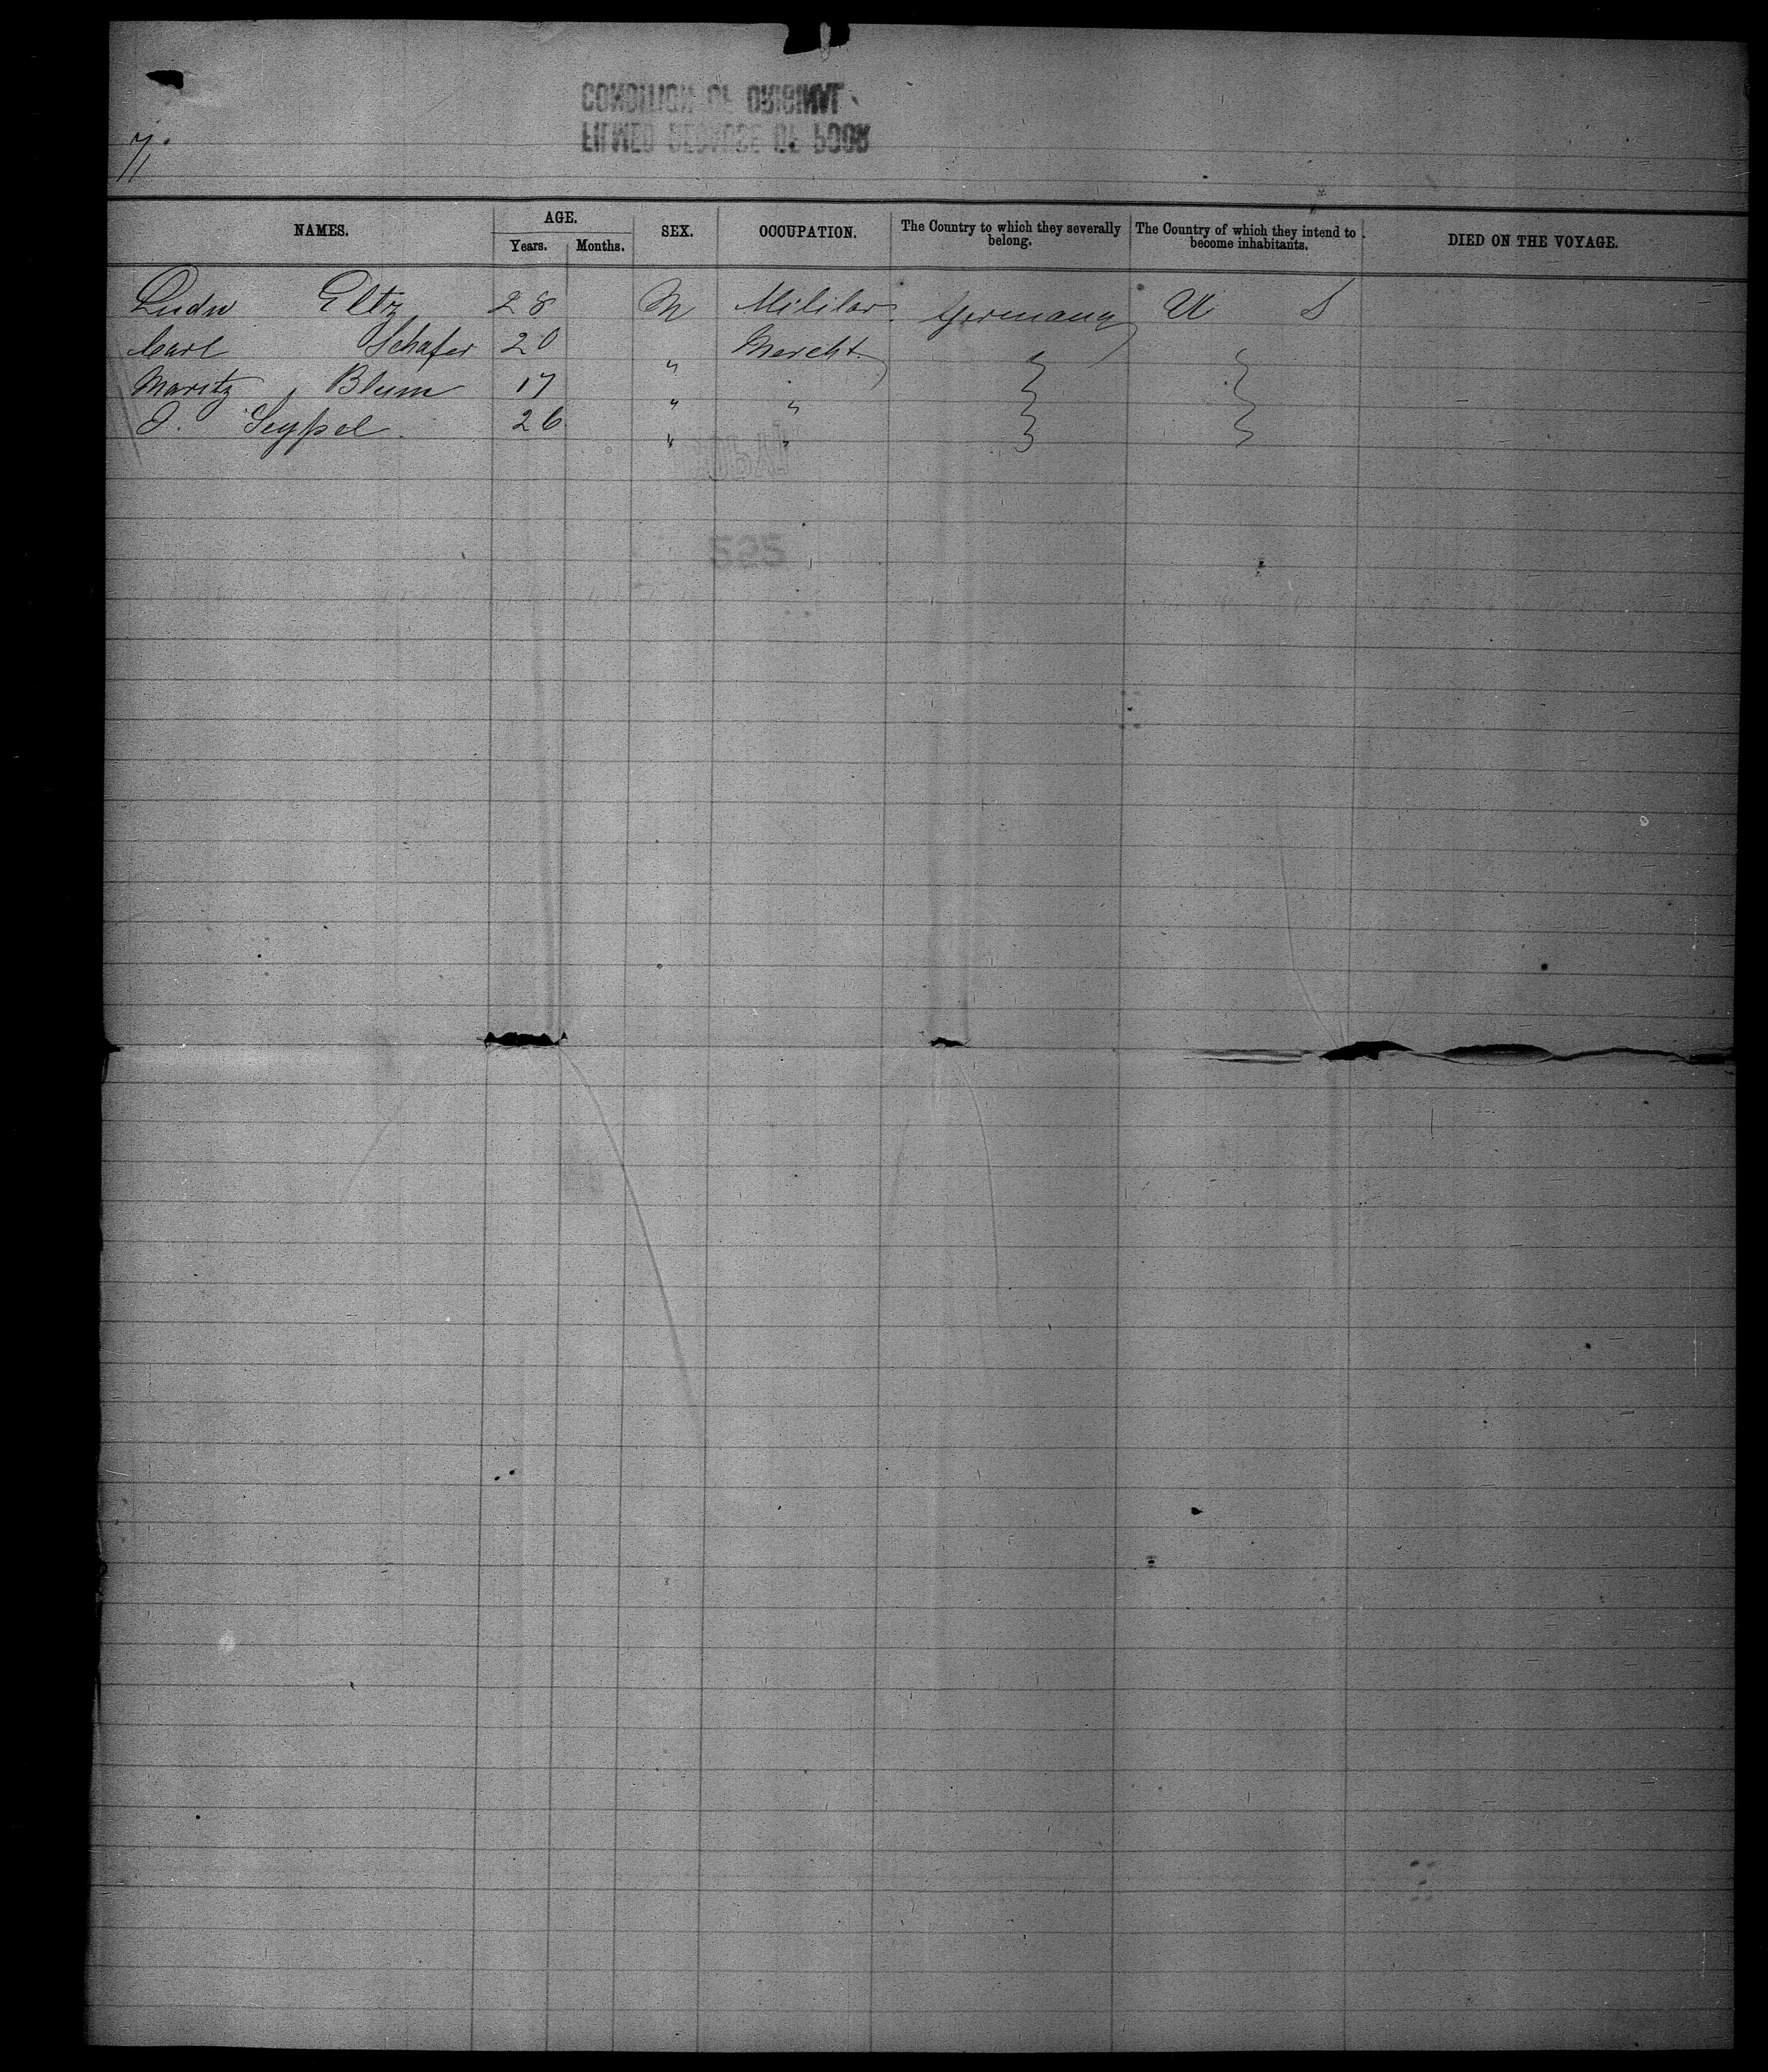 7.
NAMES. AGE. SEX. OCCUPATION. The Country to which they severally belong. The Country of which they intend to become inhabitants. DIED ON THE VOYAGE.
Years. Months.
Ludw Eltz 28 M Militar. Germany U S
Carl Schafer 20 " Mercht.
Moritz Blum 17 " "
J. Seypel. 26 " "
525